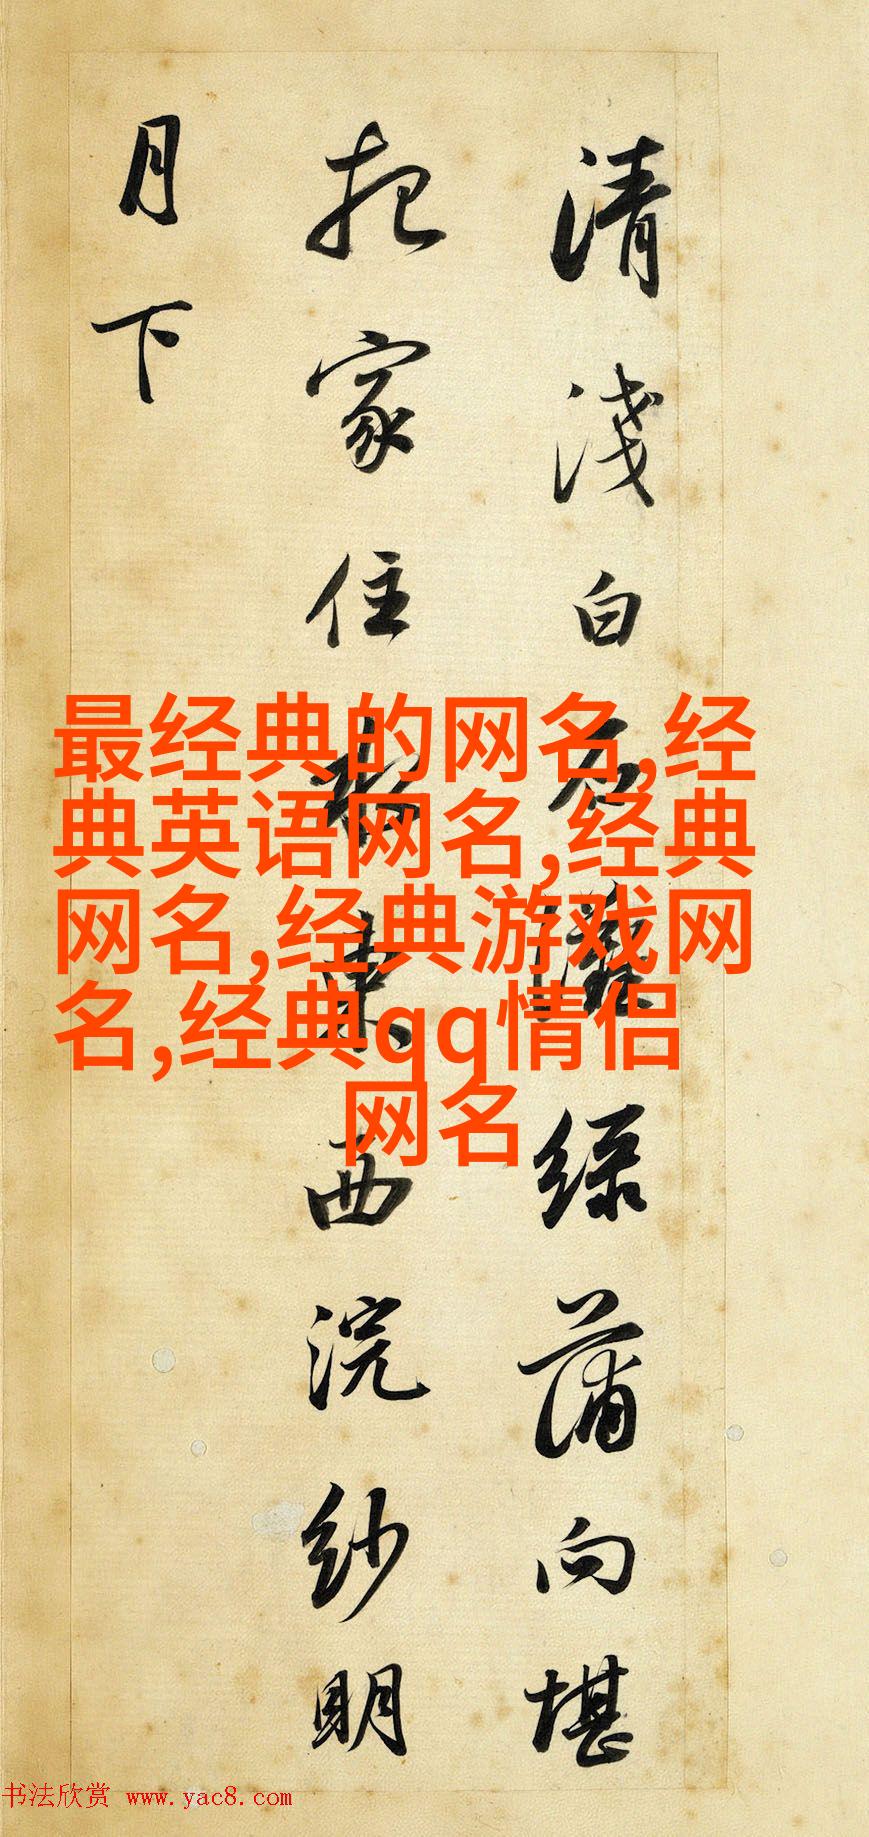 清淺白石灘綠蒲向堪
把家住水東西浣紗明
月下
最经典的网名,经
典英语网名,经典
网名,经典游戏网
名,经典qq情侣
网名
书法欣赏 www.yac8.com